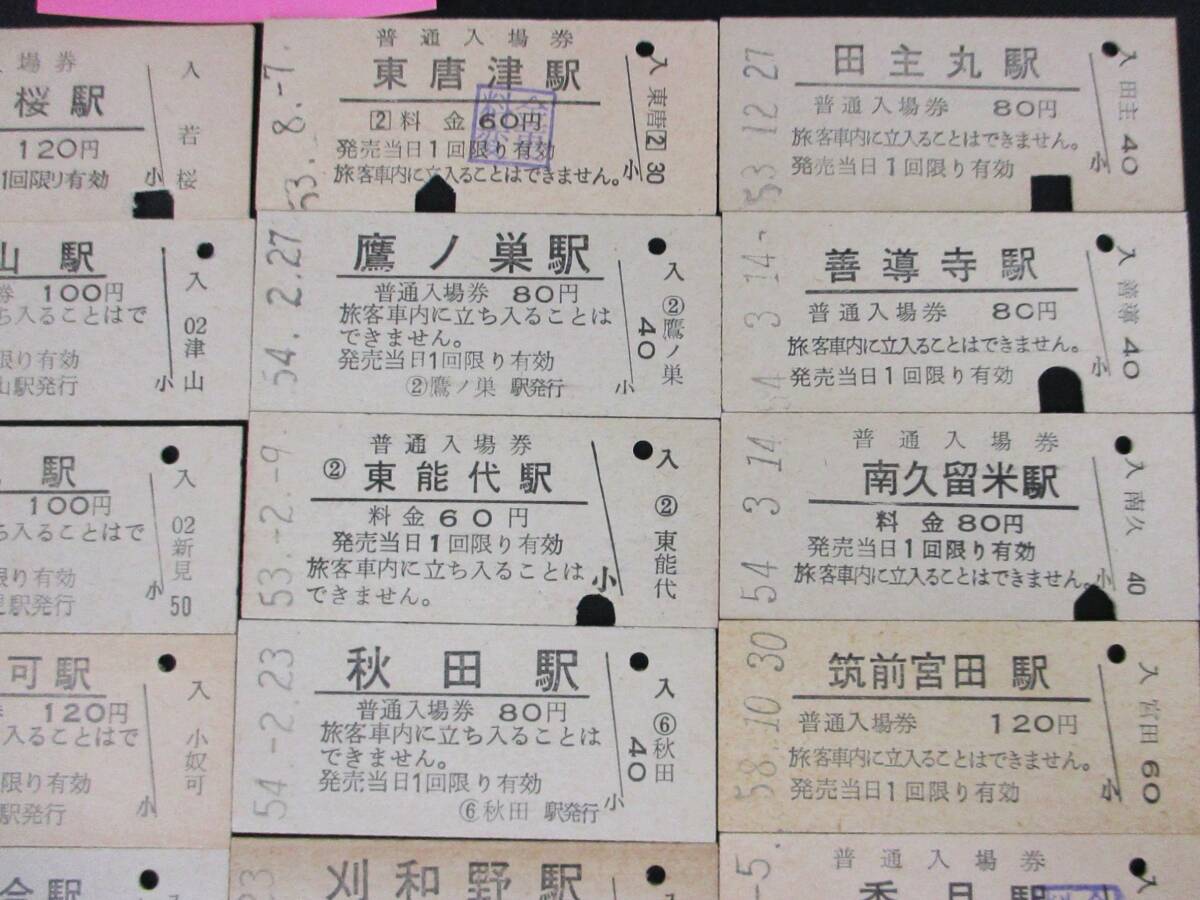 場券
桜駅
120円
1回限り有効
小
入
若桜
山駅
券 100円
ち入ることはで
限り有効
山駅発行
小
入
02津山
駅
100円
ち入ることはで
限り有効
駅発行
小
入
02新見
50
可駅
120円
入ることはで
限り有効
駅発行
小
入
小奴可
駅
53.8.-7.
普通入場券
東唐津駅
2 料金60円
発売当日1回限り有効
旅客車内に立入ることはできません。
小
入
東唐2
30
54.2.27
鷹ノ巣駅
普通入場券 80円
旅客車内に立ち入ることは
できません。
発売当日1回限り有効
②鷹ノ巣 駅発行
小
40
入
②鷹ノ巣
53.-2.-9.
普通入場券
② 東能代駅
料金60円
発売当日1回限り有効
旅客車内に立ち入ることは
できません。
小
入
②東能代
54.-2.23
秋田駅
普通入場券 80円
旅客車内に立ち入ることは
できません。
発売当日1回限り有効
⑥秋田 駅発行
小
40
入
⑥秋田
刈和野駅
入
53 12 27
田主丸駅
普通入場券 80円
旅客車内に立入ることはできません。
発売当日1回限り有効
小
入
田主
40
54 3 14
善導寺駅
普通入場券 80円
旅客車内に立入ることはできません。
発売当日1回限り有効
小
入
善導
40
54 3 14
普通入場券
南久留米駅
料金80円
発売当日1回限り有効
旅客車内に立入ることはできません。
小
入
南久
40
58.10 30
筑前宮田駅
普通入場券 120円
旅客車内に立入ることはできません。
発売当日1回限り有効
小
入
宮田
60
-5.
普通入場券
香月駅
入